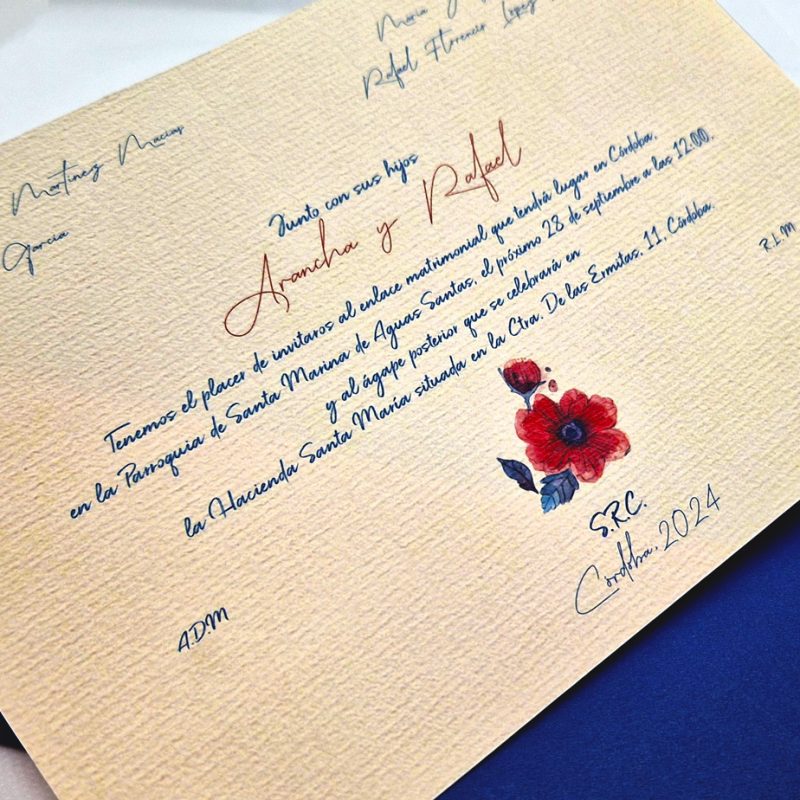 Martínez Macías
García
María y
Rafael Florencio López
Junto con sus hijos
Arancha y Rafael
Tenemos el placer de invitaros al enlace matrimonial que tendrá lugar en Córdoba,
en la Parroquia de Santa Marina de Aguas Santas, el próximo 28 de septiembre a las 12:00.
y al ágape posterior que se celebrará en
la Hacienda Santa María situada en la Ctra. De las Ermitas, 11, Córdoba.
S.R.C.
Córdoba, 2024
A.D.M
R.L.M